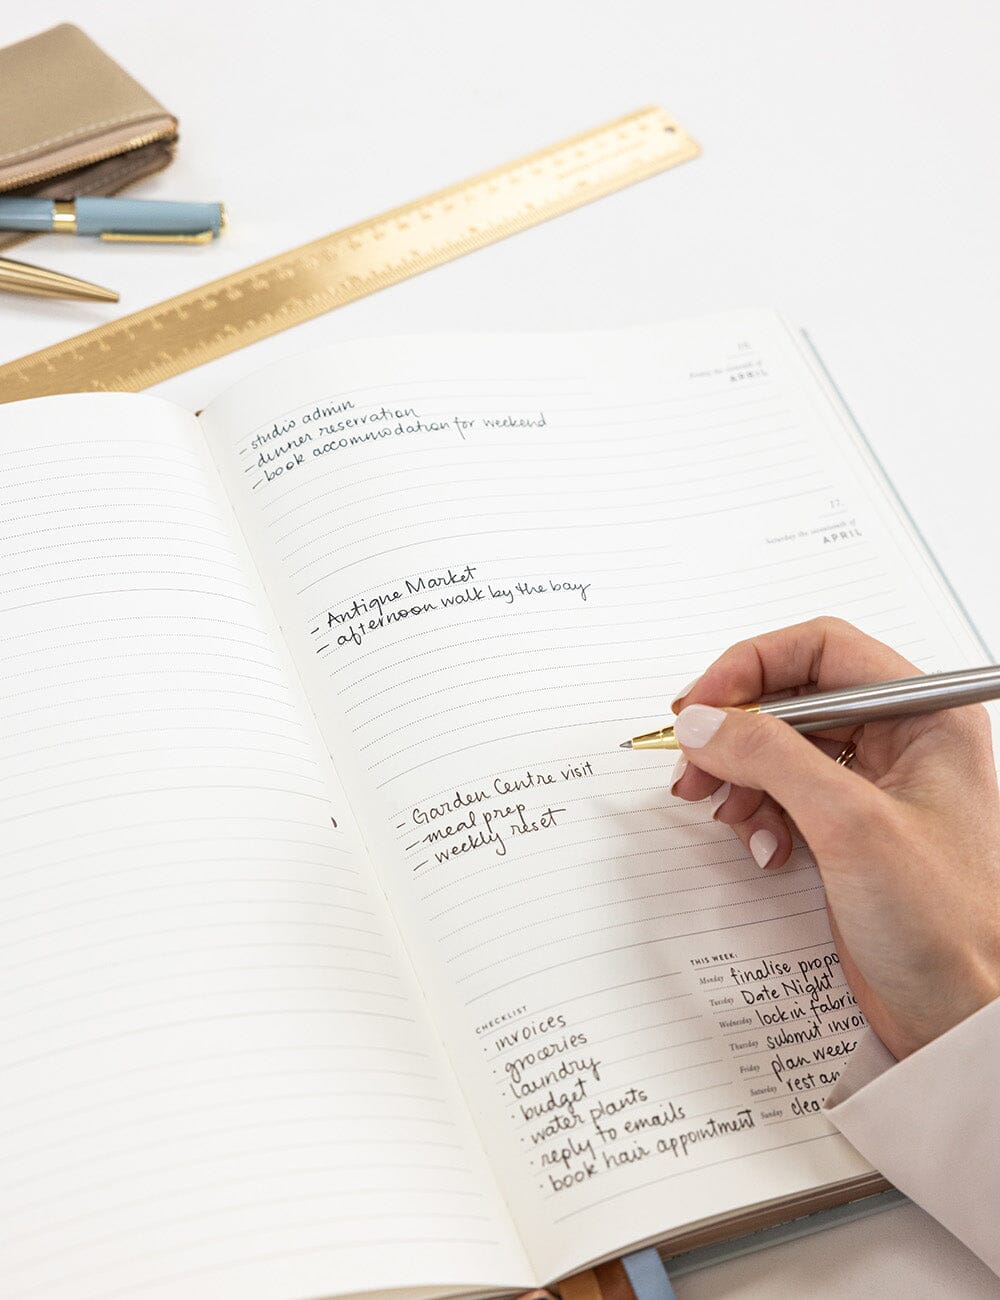 16.
Friday the sixteenth of
APRIL
- studio admin
- dinner reservation
- book accommodation for weekend
17.
Saturday the seventeenth of
APRIL
- Antique Market
- afternoon walk by the bay
- Garden Centre visit
- meal prep
- weekly reset
CHECKLIST
· invoices
· groceries
· laundry
· budget
· water plants
· reply to emails
· book hair appointment
THIS WEEK:
Monday finalise
Tuesday Date Night
Wednesday lock in
Thursday submit
Friday plan
Saturday rest
Sunday